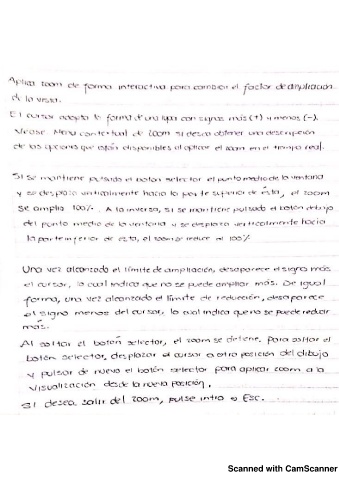 Aplica zoom de forma interactiva para cambiar el factor de ampliación
de la vista.
El cursor adopta la forma de una lupa con signos más (+) y menos (-).
Véase Menú contextual de Zoom si desea obtener una descripción
de las opciones que están disponibles al aplicar el zoom en el tiempo real.
Si se mantiene pulsado el botón selector el punto medio de la ventana
y se desplaza verticalmente hacia la parte superior de ésta, el zoom
se amplía 100%. A la inversa, si se mantiene pulsado el botón debajo
del punto medio de la ventana y se desplaza verticalmente hacia
la parte inferior de esta, el zoom se reduce al 100%
Una vez alcanzado el límite de ampliación, desaparece el signo más
el cursor, lo cual indica que no se puede ampliar más. De igual
forma, una vez alcanzado el límite de reducción, desaparece
el signo menos del cursor, lo cual indica que no se puede reducir
más.
Al soltar el botón selector, el zoom se detiene, para soltar el
botón selector, desplazar el cursor a otra posición del dibujo
y pulsar de nuevo el botón selector para aplicar zoom a la
visualización desde la nueva posición.
Si desea salir del zoom, pulse intro o Esc.
Scanned with CamScanner